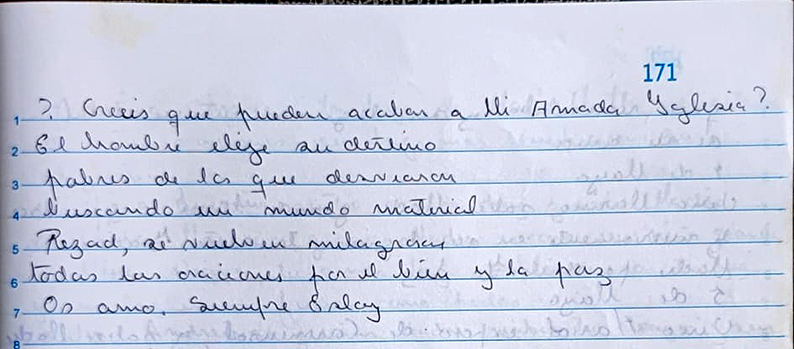 171
1 ? Creeis que pueden acabar a Mi Amada Yglesia?
2 El hombre elije su destino
3 pobres de los que desviaran
4 buscando un mundo material
5 Rezad, se vuelven milagrosas
6 todas las oraciones por el bien y la paz
7 Os amo. Siempre Estoy
8